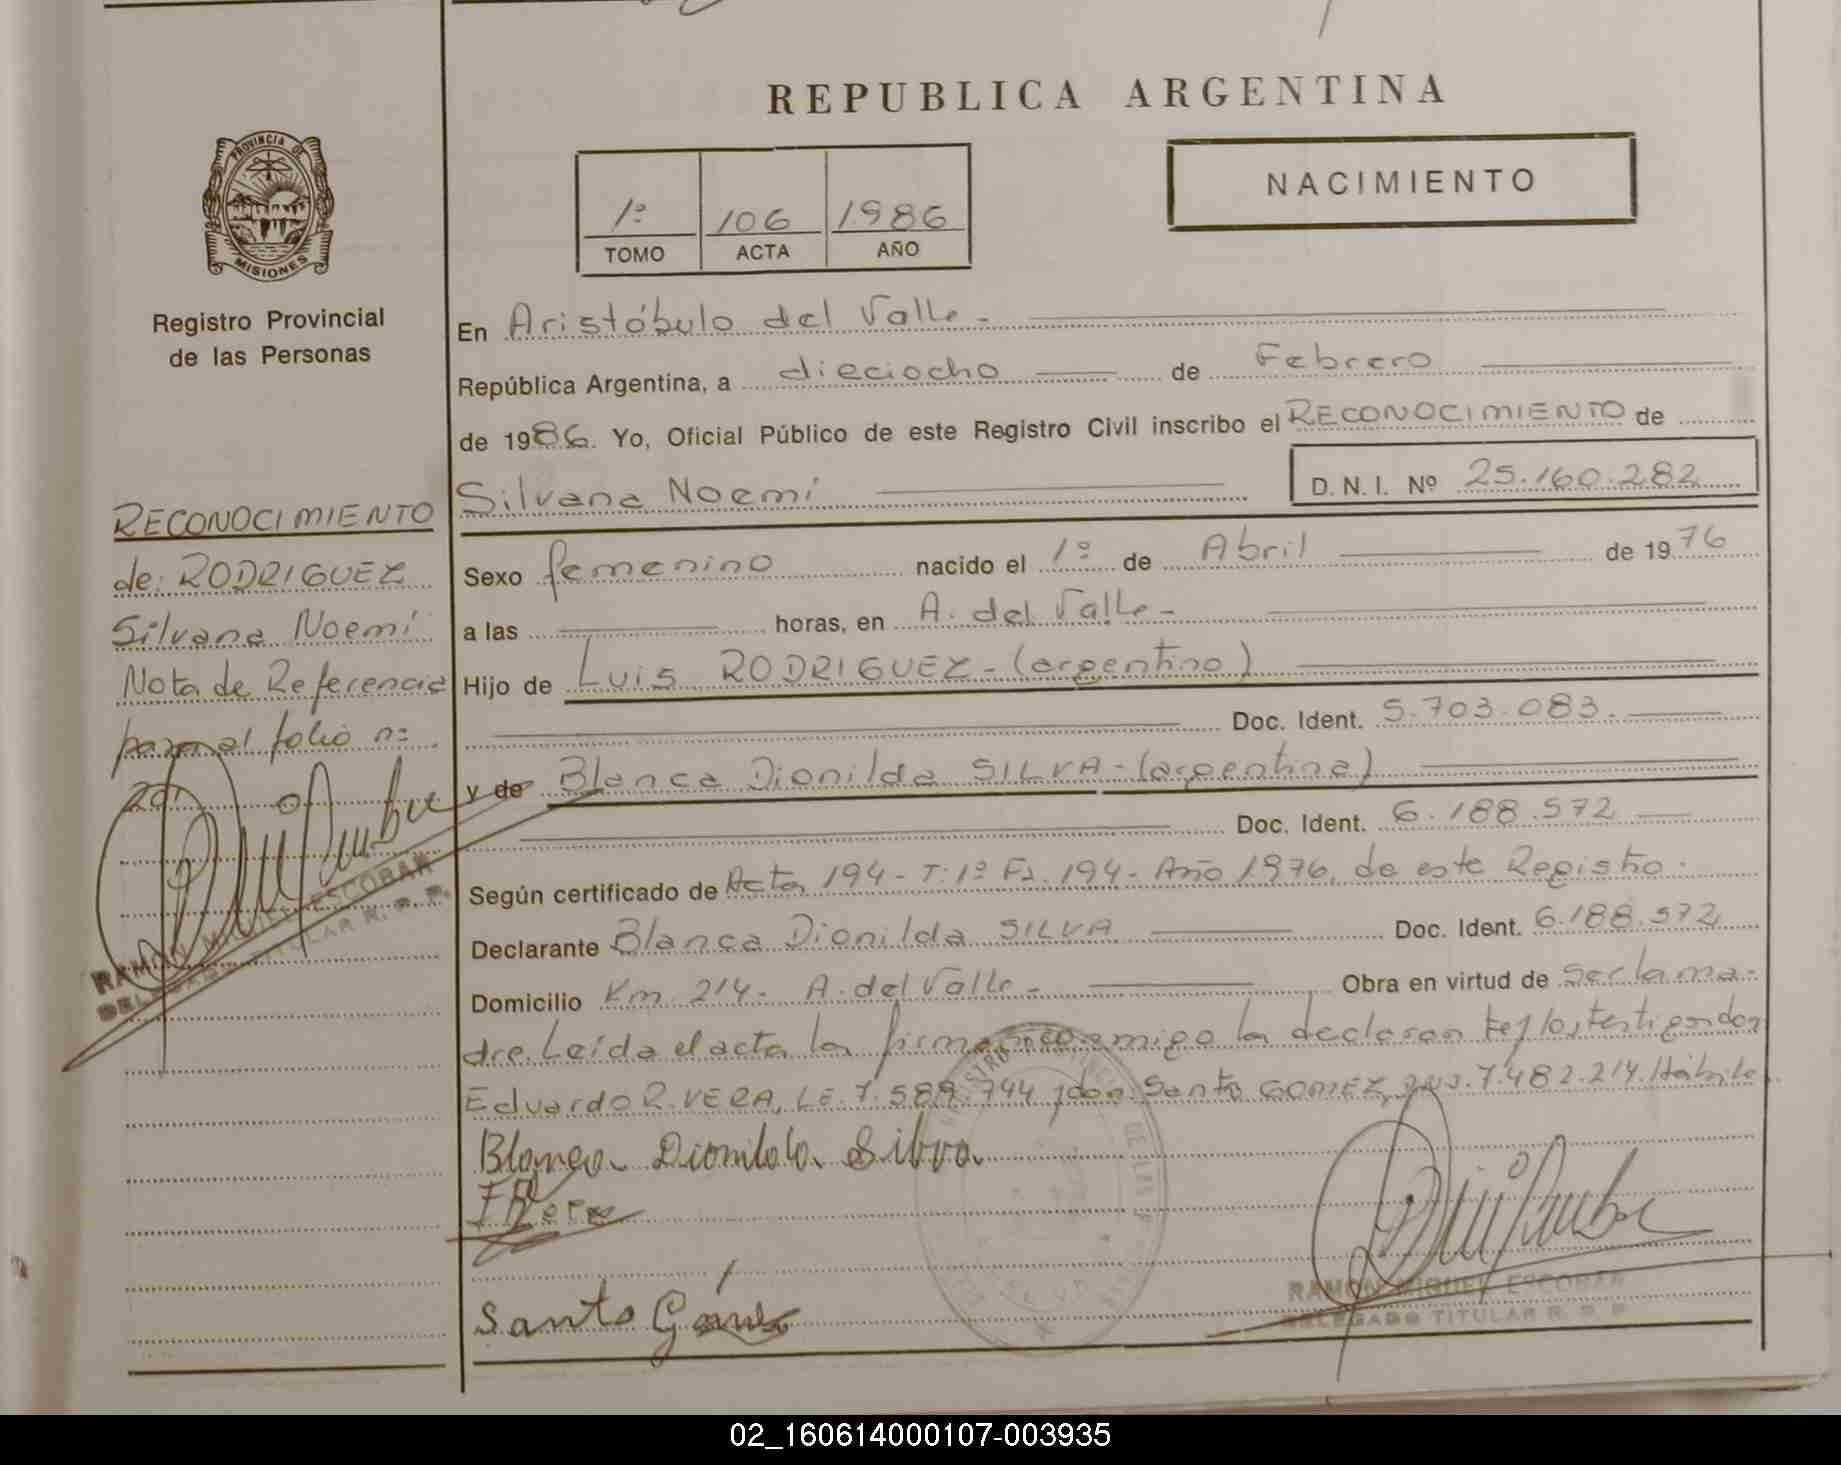 REPUBLICA ARGENTINA
PROVINCIA DE
MISIONES
Registro Provincial
de las Personas
1º 106 1986
TOMO ACTA AÑO
NACIMIENTO
En Aristóbulo del Valle -
República Argentina, a dieciocho de Febrero
de 1986. Yo, Oficial Público de este Registro Civil inscribo el RECONOCIMIENTO de
Silvana Noemí D. N. I. Nº 25.160.282
Sexo femenino nacido el 1º de Abril de 1976
a las horas, en A. del Valle -
Hijo de Luis RODRIGUEZ - (argentino)
Doc. Ident. 5.703.083.
y de Blanca Dionilda SILVA - (argentina)
Doc. Ident. 6.188.572
Según certificado de Acta 194 - T: 1º Fº. 194 - Año 1976, de este Registro.
Declarante Blanca Dionilda SILVA Doc. Ident. 6.188.572
Domicilio Km 214 - A. del Valle - Obra en virtud de
Leída el acta la conmigo la
Eduardo R. VERA, LE. 7.589.744 y don Santo GOMEZ, 7.482.214. Hábiles.
Blanca Dionilda Silva
Vera
Santo Gómez
RAMON MIGUEL ESCOBAR
DELEGADO TITULAR R. P. P.
RECONOCIMIENTO
de: RODRIGUEZ
Silvana Noemí
Nota de Referencia
para al folio nº
20.
RAMON MIGUEL ESCOBAR
DELEGADO TITULAR R. P. P.
02_160614000107-003935